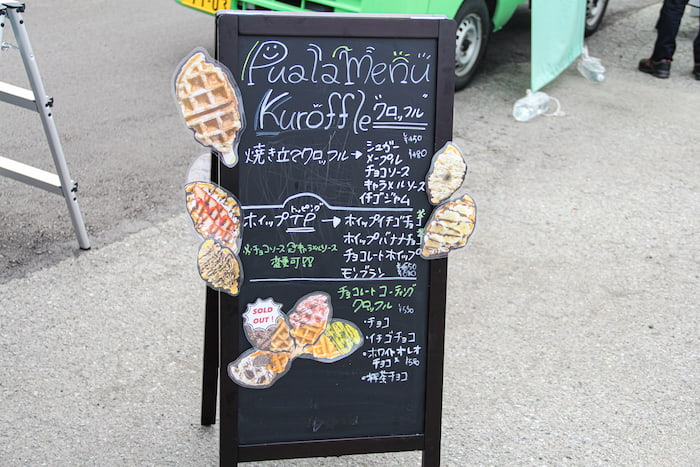 Puala Menu
Kuroffle "クロッフル"
¥450
焼き立てクロッフル→ シュガー ¥480
メープル
チョコソース
キャラメルソース
イチゴジャム
トッピング
ホイップTP → ホイップイチゴチョコ
ホイップバナナチョコ
※チョコソース キャラメルソース
変更可!!
チョコレートホイップ
モンブラン
チョコレートコーティング
クロッフル
¥550
SOLD OUT!
・チョコ
・イチゴチョコ
・ホワイトオレオ
チョコ
・抹茶チョコ